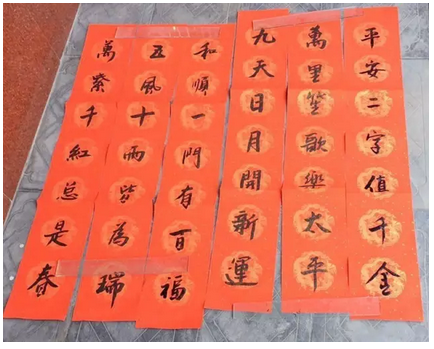 平安二字值千金
萬里笙歌樂太平
九天日月開新運
和順一門有百福
五風十雨皆為瑞
萬紫千紅总是春